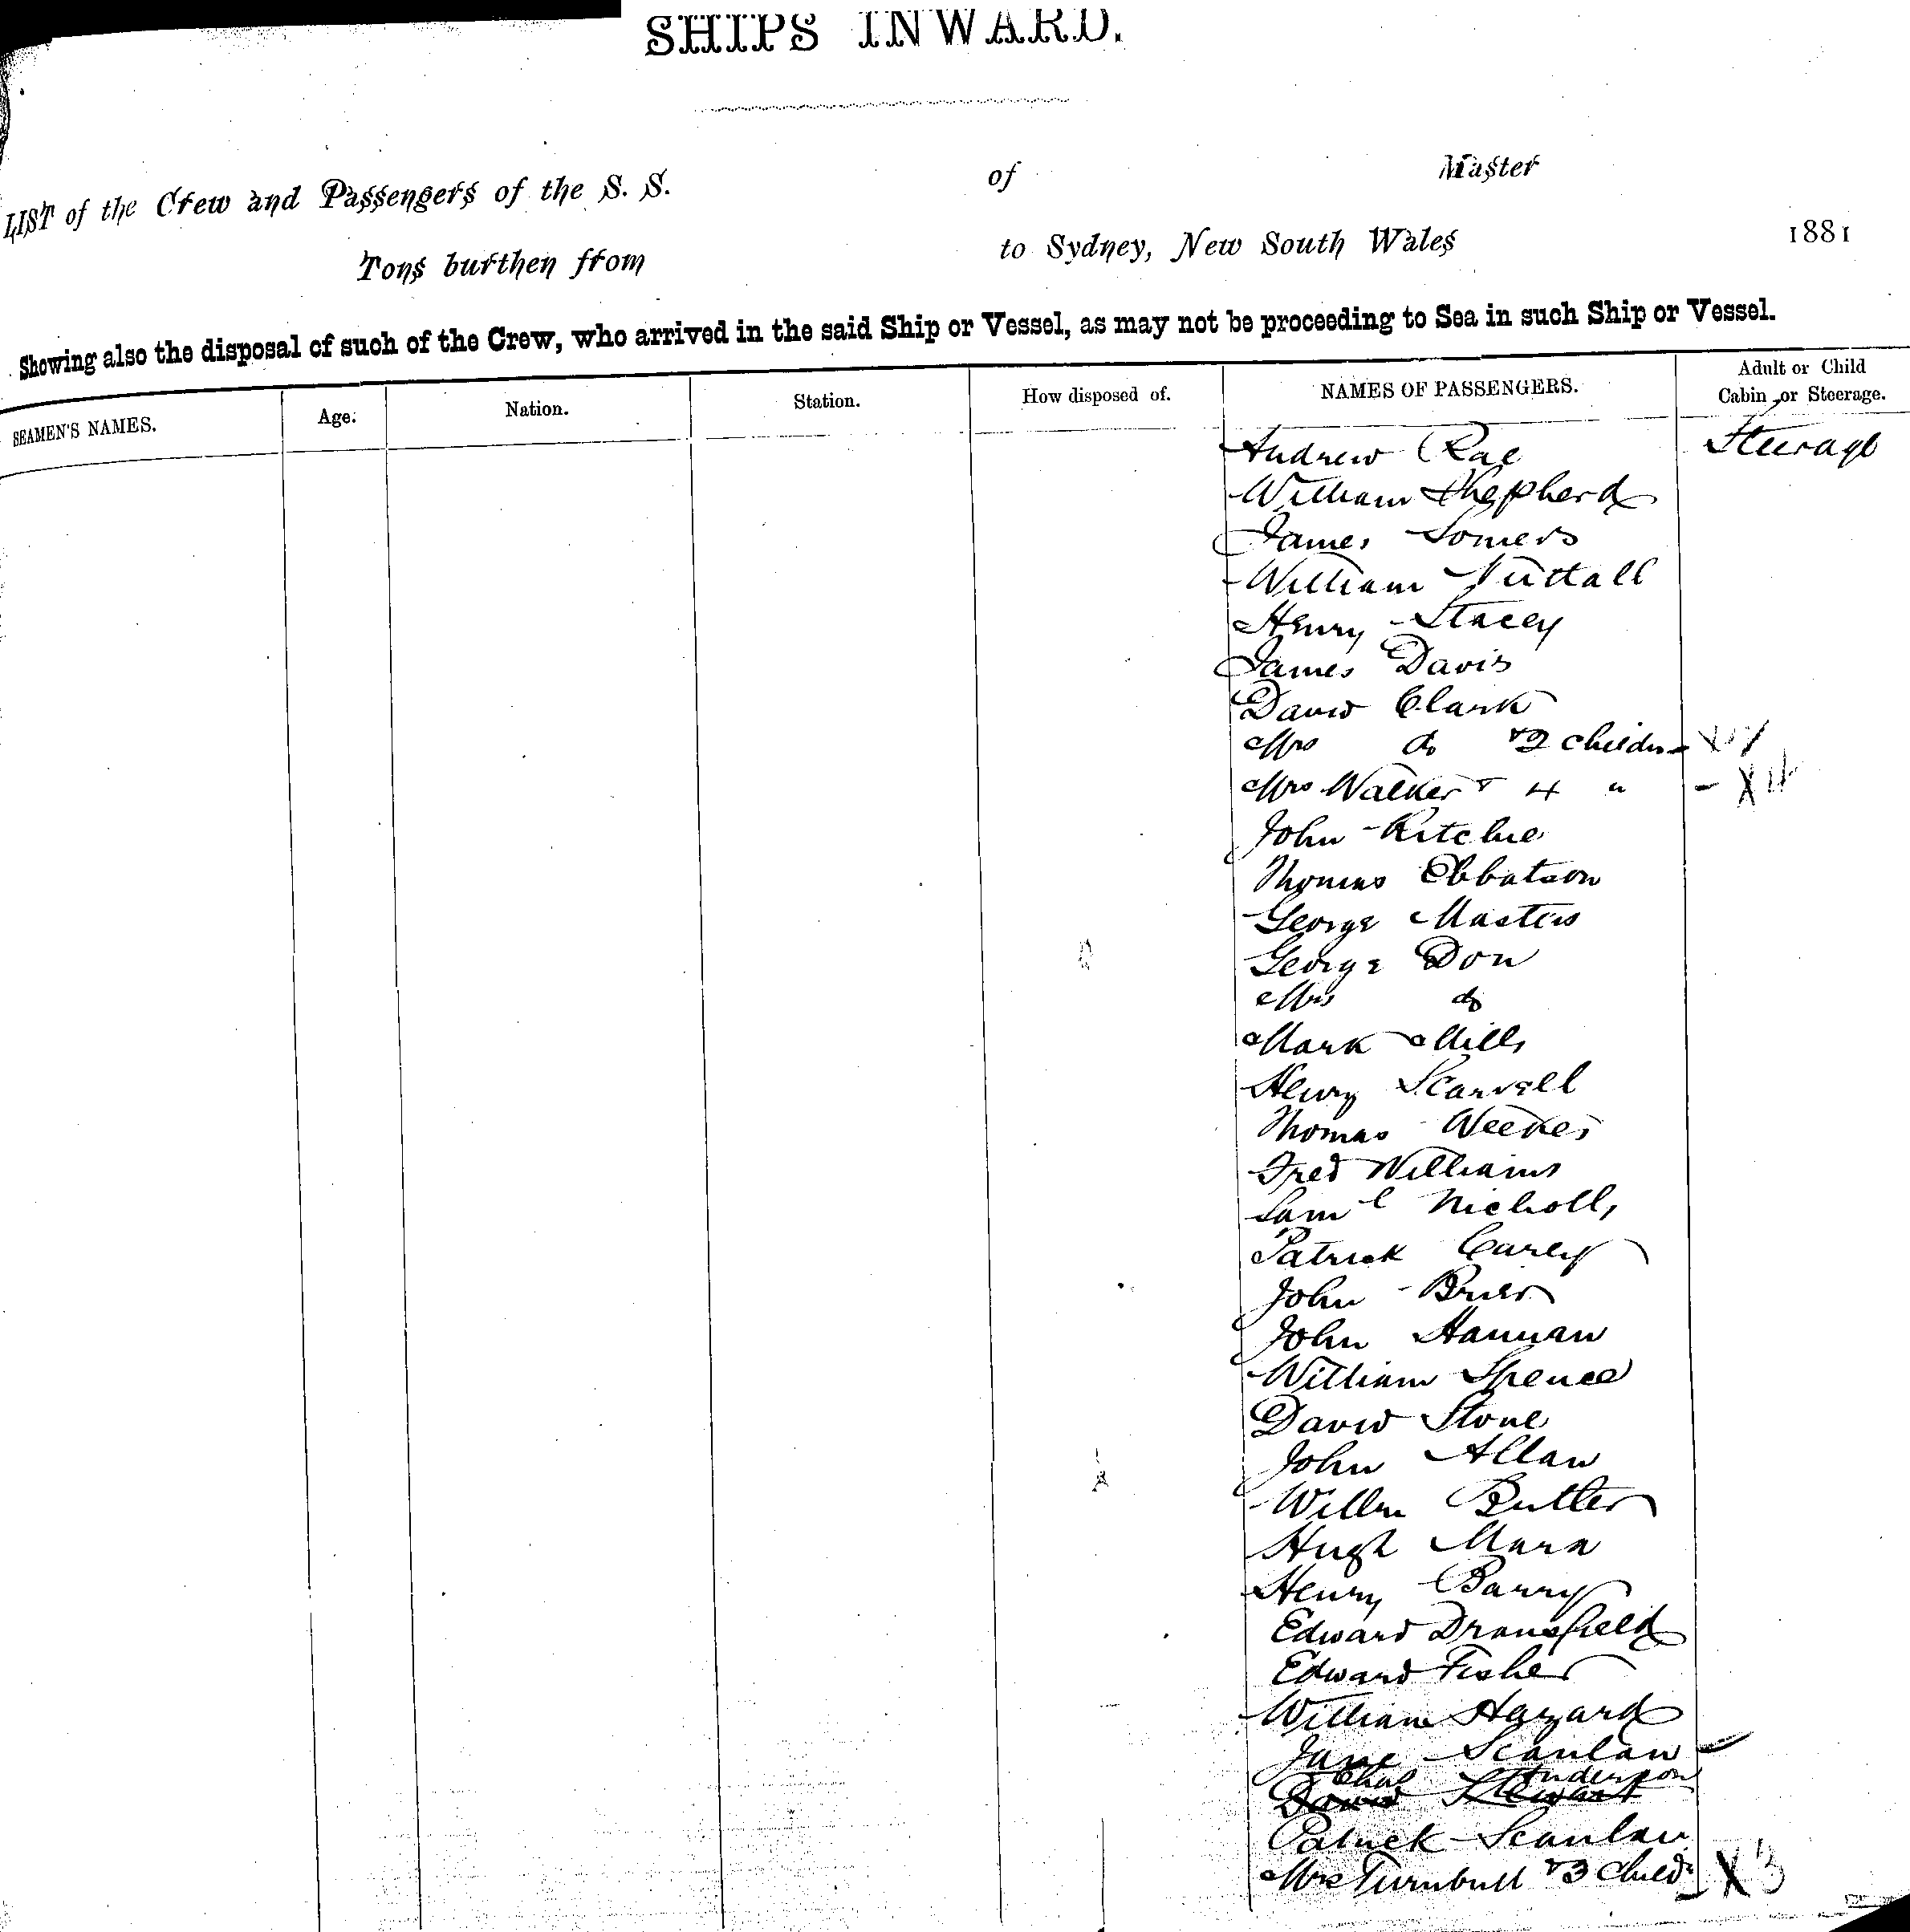 SHIPS INWARD.
LIST of the Crew and Passengers of the S. S. of Master
Tons burthen from to Sydney, New South Wales 1881
Showing also the disposal of such of the Crew, who arrived in the said Ship or Vessel, as may not be proceeding to Sea in such Ship or Vessel.
SEAMEN'S NAMES. Age. Nation. Station. How disposed of. NAMES OF PASSENGERS. Adult or Child Cabin or Steerage.
Andrew Rae Steerage
William Shepherd
James Somers
William Nuttall
Henry Stacey
James Davis
David Clark
Mrs do & 2 childn
Mrs Walker & 4 "
John Ritchie
Thomas Ebbatson
George Masters
George Don
Mrs do
Mark Mills
Henry Scarvell
Thomas Weekes
Fred Williams
Saml Nicholls
Patrick Carey
John Brier
John Hannan
William Spence
David Stone
John Allan
Willm Butler
Hugh Mara
Henry Barry
Edward Dransfield
Edward Fisher
William Hazard
Jane Scanlan
Chas Anderson
David Stewart
Patrick Scanlan
Mrs Turnbull & 3 Childn X 3